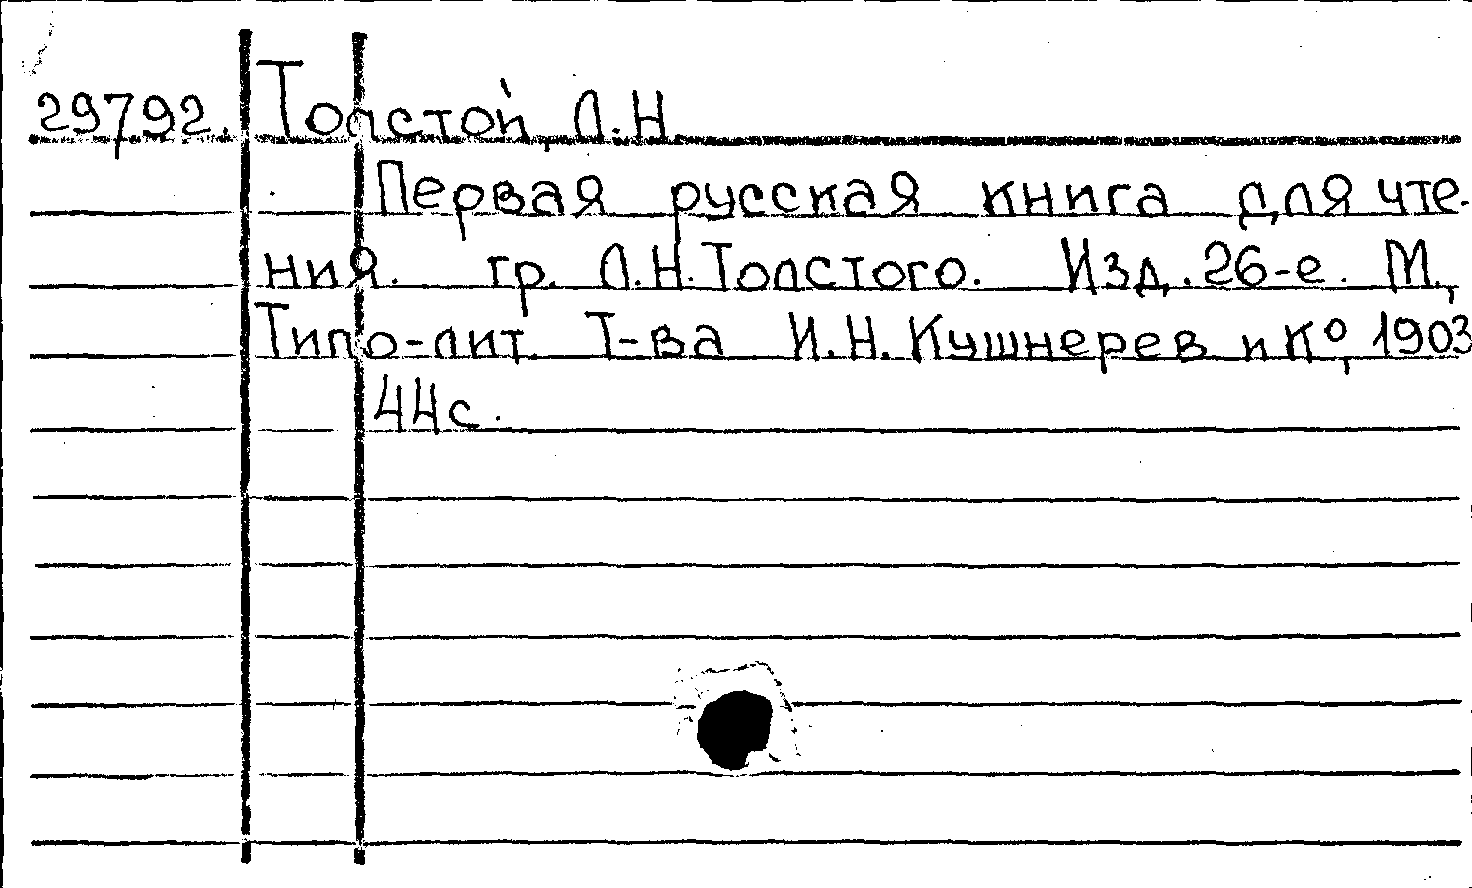 29792. Толстой, Л.Н.
Первая русская книга для чте-
ния. гр. Л.Н.Толстого. Изд. 26-е. М.,
Типо-лит. Т-ва И.Н.Кушнерев и К°, 1903
44с.